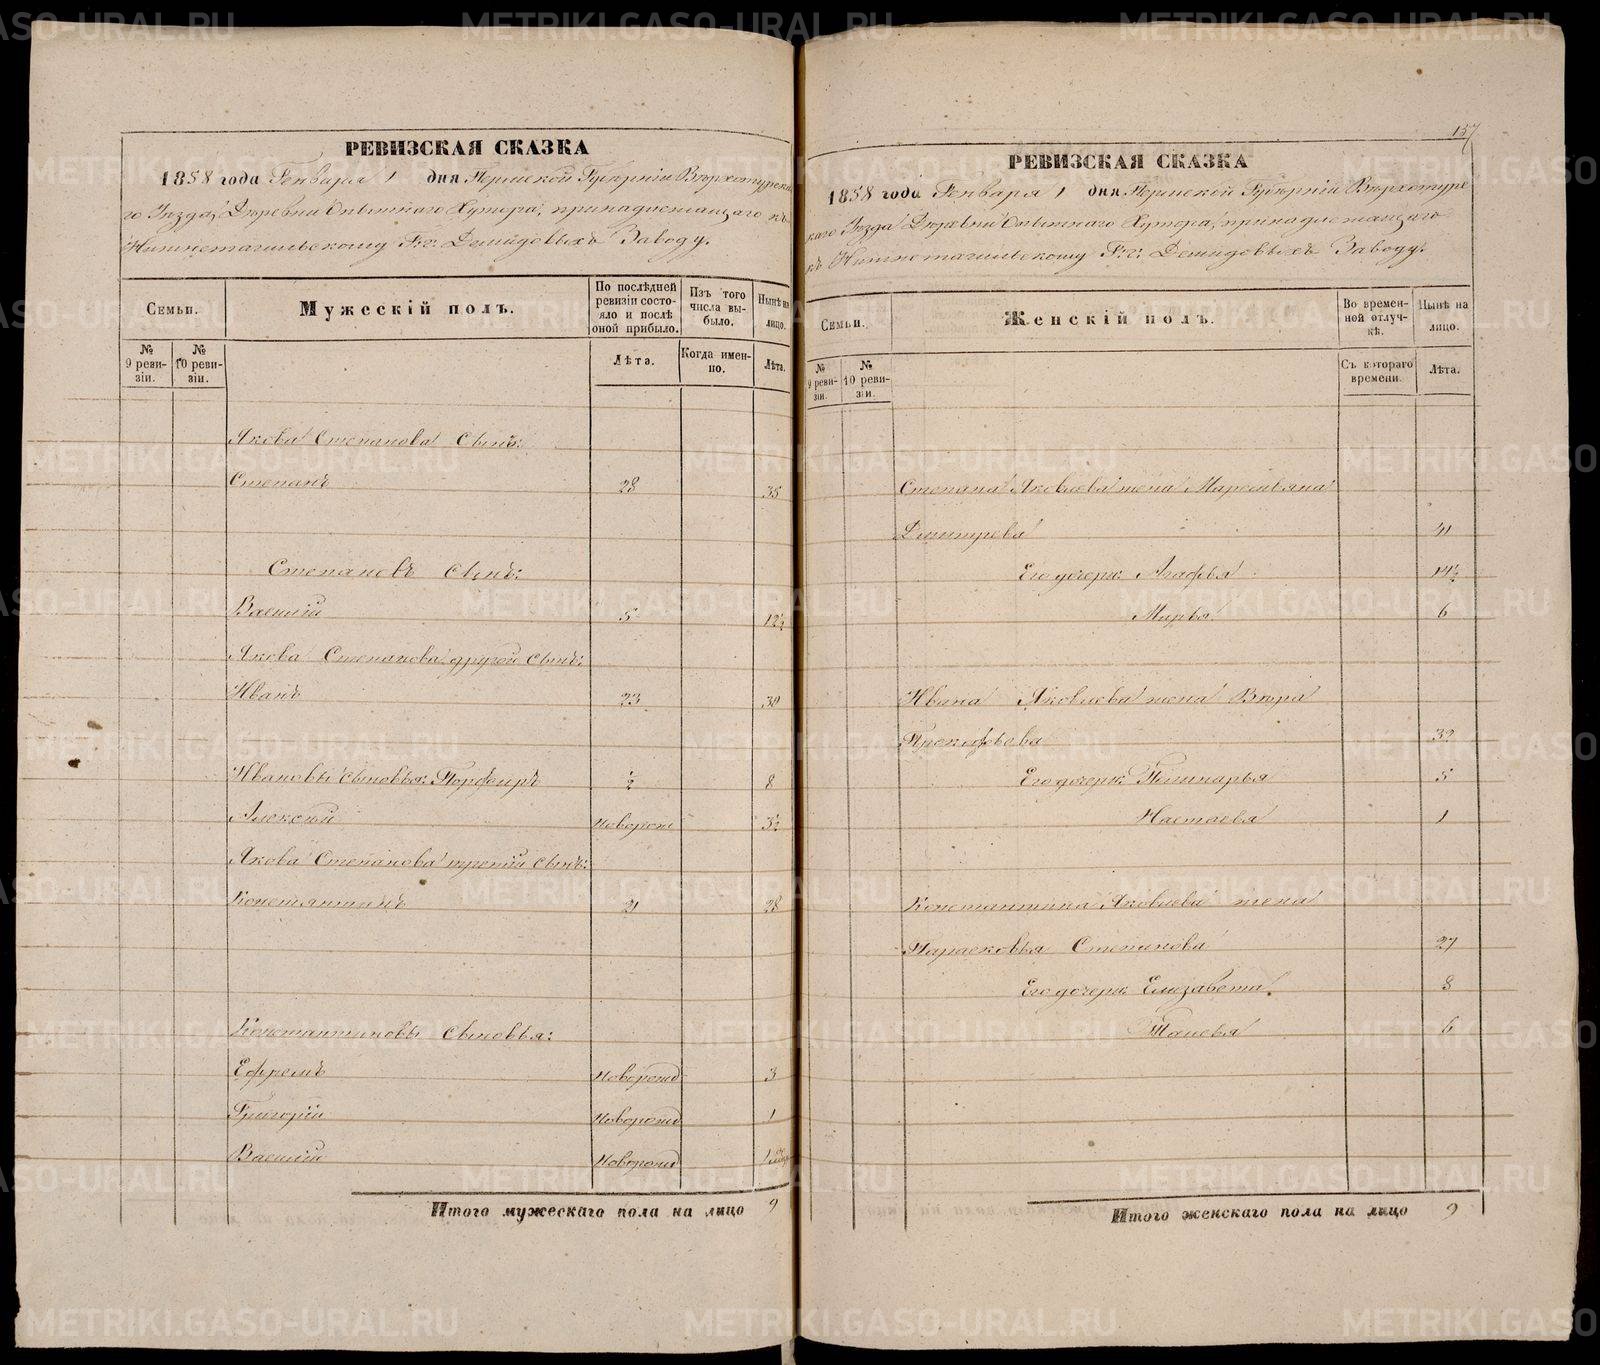 РЕВИЗСКАЯ СКАЗКА
1858 года Генваря 1 дня Пермской Губерніи Верхотурска
го Уезда, Деревни Опытнаго Хутора, принадлежащаго къ
Нижнетагильскому Г.г. Демидовыхъ Заводу.
Семьи.
Мужескій полъ.
По послѣдней ревизіи состояло и послѣ оной прибыло.
Изъ того числа выбыло.
Нынѣ на лицо.
№ 9 ревизіи.
№ 10 ревизіи.
Лѣта.
Когда именно.
Лѣта.
Якова Степанова сынъ:
Степанъ 28 35
Степановъ сынъ:
Василій 5 12½
Якова Степанова другой сынъ:
Иванъ 23 30
Ивановы сыновья: Порфиръ ½ 8
Алексѣй новорож 3½
Якова Степанова третій сынъ:
Константинъ 21 28
Константиновы сыновья:
Ефремъ новорожд 3
Григорій новорожд 1
Василій новорожд
Итого мужескаго пола на лицо 9
157
РЕВИЗСКАЯ СКАЗКА
1858 года Генваря 1 дня Пермской Губерніи Верхотурс
каго Уезда Деревни Опытнаго Хутора, принадлежащаго
къ Нижнетагильскому Г.г. Демидовыхъ Заводу.
Семьи.
Женскій полъ.
Во временной отлучкѣ.
Нынѣ на лицо.
№ 9 ревизіи.
№ 10 ревизіи.
Съ котораго времени.
Лѣта.
Степана Яковлева жена Маремьяна
Дмитрева 41
Его дочери: Агафья 14½
Марья 6
Ивана Яковлева жена Вѣра
Прокофьева 32
Его дочери: 5
Настасья 1
Константина Яковлева жена
Парасковья Степанова 27
Его дочери: Елизавета 8
Таисья 6
Итого женскаго пола на лицо 9
METRIKI.GASO-URAL.RU